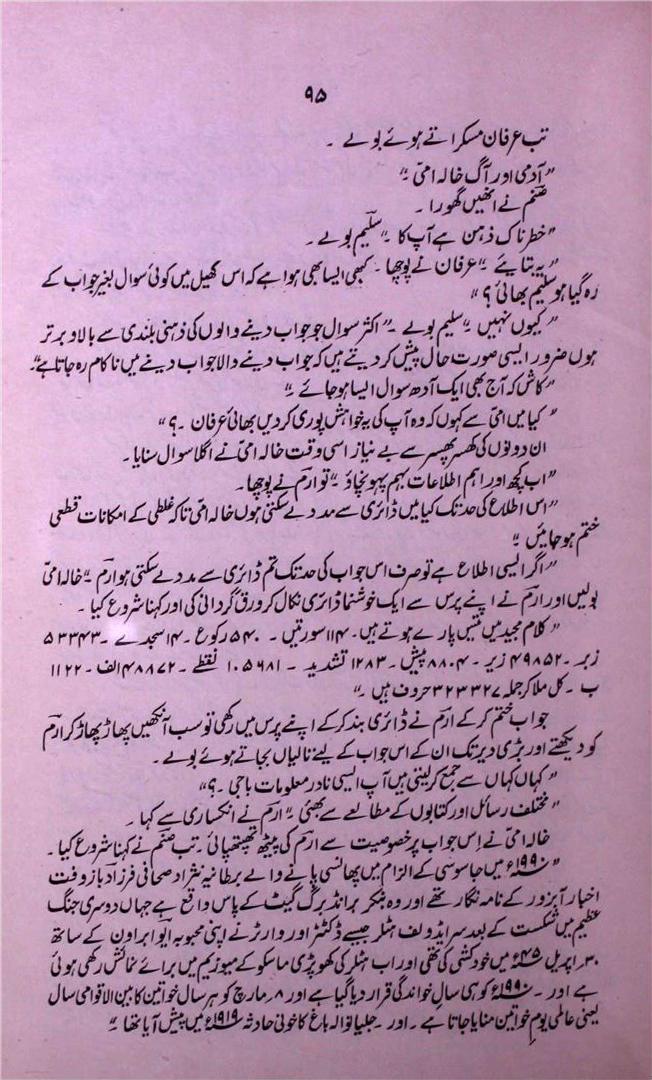 ۹۵
تب عرفان مسکراتے ہوئے بولے ۔
”آدمی اور آگ خالہ امیّ ۔“
صنم نے انھیں گھورا ۔
”خطرناک ذہن ہے آپ کا ۔“ سلیم بولے ۔
”یہ بتایئے ۔“ عرفان نے پوچھا ۔ کبھی ایسا بھی ہوا ہے کہ اس کھیل میں کوئی سوال بغیر جواب کے
رہ گیا ہو سلیم بھائی ؟“
”کیوں نہیں ۔“ سلیم بولے ۔“ اکثر سوال جو جواب دینے والوں کی ذہنی بلندی سے بالا و برتر
ہوں ضرور ایسی صورت حال پیش کر دیتے ہیں کہ جواب دینے والا جواب دینے میں ناکام رہ جاتا ہے“۔
”کاش کہ آج بھی ایک آدھ سوال ایسا ہو جائے ۔“
”کیا میں امیّ سے کہوں کہ وہ آپ کی یہ خواہش پوری کر دیں بھائی عرفان ۔؟“
ان دونوں کی کھسر پھسر سے بے نیاز اسی وقت خالہ امیّ نے اگلا سوال سنایا ۔
”اب کچھ اور اہم اطلاعات بہم پہونچاؤ ۔“ تو ارم نے پوچھا ۔
”اس اطلاع کی حد تک کیا میں ڈائری سے مدد لے سکتی ہوں خالہ امیّ تاکہ غلطی کے امکانات قطعی
ختم ہو جائیں ۔“
”اگر ایسی اطلاع ہے تو صرف اس جواب کی حد تک تم ڈائری سے مدد لے سکتی ہو ارم ۔“ خالہ امیّ
بولیں اور ارم نے اپنے پرس سے ایک خوشنما ڈائری نکال کر ورق گردانی کی اور کہنا شروع کیا ۔
”کلام مجید میں تیس پارے ہوتے ہیں ۔ ۱۱۴ سورتیں ۔ ۵۴۰ رکوع ۔ ۱۴ سجدے ۔ ۵۳۳۴۳
زبر ۔ ۴۹۸۵۲ زیر ۔ ۸۸۰۴ پیش ۔ ۱۲۸۳ تشدید ۔ ۱۰۵۶۸۱ نقطے ۔ ۴۸۸۷۲ الف ۔ ۱۱۲۲
ب ۔ کل ملا کر جملہ ۳۲۳۳۲۷ حروف ہیں ۔“
جواب ختم کر کے ارم نے ڈائری بند کر کے اپنے پرس میں رکھی تو سب آنکھیں پھاڑ پھاڑ کر ارم
کو دیکھتے اور بڑی دیر تک ان کے اس جواب کے لیے تالیاں بجاتے ہوئے بولے ۔
”کہاں کہاں سے جمع کر لیتی ہیں آپ ایسی نادر معلومات باجی ۔؟“
”مختلف رسائل اور کتابوں کے مطالعے سے بھئی ۔“ ارم نے انکساری سے کہا ۔
خالہ امیّ نے اِس جواب پر خصوصیت سے ارم کی پیٹھ تھپتھپائی ۔ تب صنم نے کہنا شروع کیا ۔
”۱۹۹۰ء میں جاسوسی کے الزام میں پھانسی پانے والے برطانیہ نژاد صحافی فرزاد بازوفت
اخبار آبزور کے نامہ نگار تھے اور وہ بنکر برانڈبرگ گیٹ کے پاس واقع ہے جہاں دوسری جنگ
عظیم میں شکست کے بعد سر ایڈولف ہٹلر جیسے ڈکٹٹر اور وارثر نے اپنی محبوبہ ایوا براون کے ساتھ
۳۰؍ اپریل ۴۵ء میں خودکشی کی تھی اور اب ہٹلر کی کھوپڑی ماسکو کے میوزیم میں برائے نمائش رکھی ہوئی
ہے اور ۔ ۱۹۹۰ء کو ہی سالِ خواندگی قرار دیا گیا ہے اور ۸؍ مارچ کو ہر سال خواتین کا بین الاقوامی سال
یعنی عالمی یومِ خواتین منایا جاتا ہے ۔ اور ۔ جلیانوالہ باغ کا خونی حادثہ ۱۹۱۹ء میں پیش آیا تھا ۔“